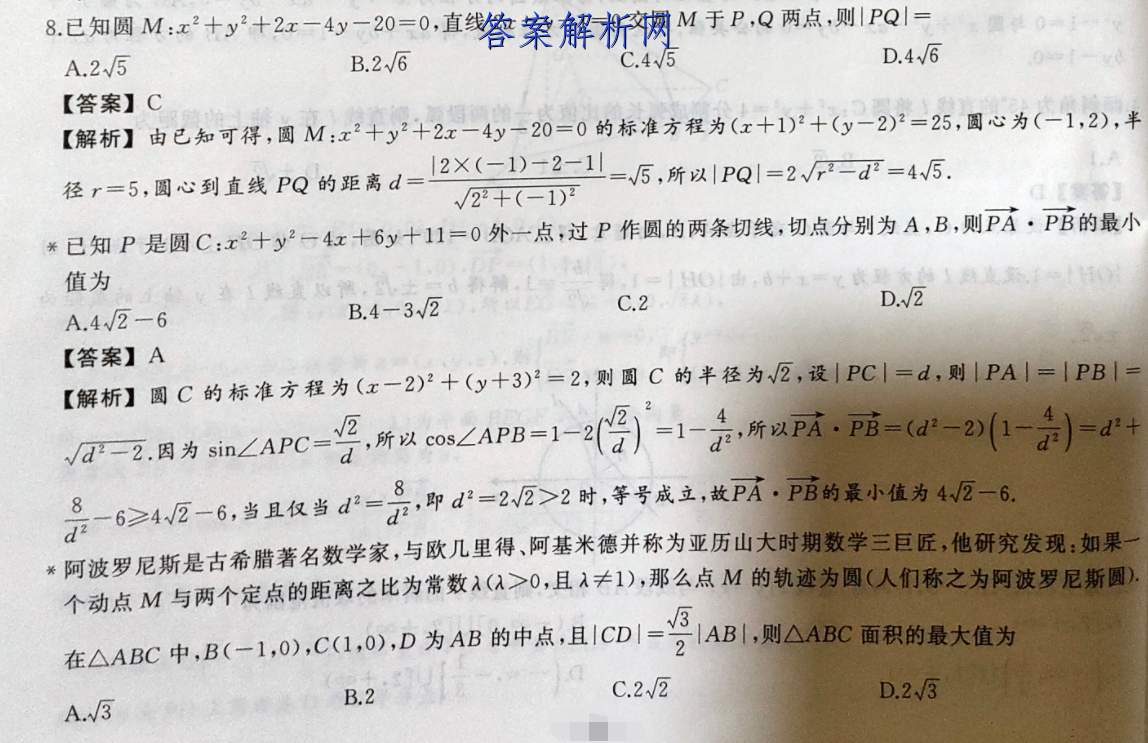 8.已知圆 M:x²+y²+2x-4y-20=0,直线 交圆 M 于 P,Q 两点,则|PQ|=
答案解析网
A.2√5 B.2√6 C.4√5 D.4√6
【答案】C
【解析】由已知可得,圆 M:x²+y²+2x-4y-20=0 的标准方程为(x+1)²+(y-2)²=25,圆心为(-1,2),半
径 r=5,圆心到直线 PQ 的距离 d=|2×(-1)-2-1|/√(2²+(-1)²)=√5,所以|PQ|=2√(r²-d²)=4√5.
*已知 P 是圆 C:x²+y²-4x+6y+11=0 外一点,过 P 作圆的两条切线,切点分别为 A,B,则→PA·→PB的最小
值为
A.4√2-6 B.4-3√2 C.2 D.√2
【答案】A
【解析】圆 C 的标准方程为(x-2)²+(y+3)²=2,则圆 C 的半径为√2,设|PC|=d,则|PA|=|PB|=
√(d²-2).因为 sin∠APC=√2/d,所以 cos∠APB=1-2(√2/d)²=1-4/d²,所以→PA·→PB=(d²-2)(1-4/d²)=d²+
8/d²-6≥4√2-6,当且仅当 d²=8/d²,即 d²=2√2>2 时,等号成立,故→PA·→PB的最小值为 4√2-6.
*阿波罗尼斯是古希腊著名数学家,与欧几里得、阿基米德并称为亚历山大时期数学三巨匠,他研究发现:如果一
个动点 M 与两个定点的距离之比为常数λ(λ>0,且λ≠1),那么点 M 的轨迹为圆(人们称之为阿波罗尼斯圆).
在△ABC 中,B(-1,0),C(1,0),D 为 AB 的中点,且|CD|=√3/2|AB|,则△ABC 面积的最大值为
A.√3 B.2 C.2√2 D.2√3